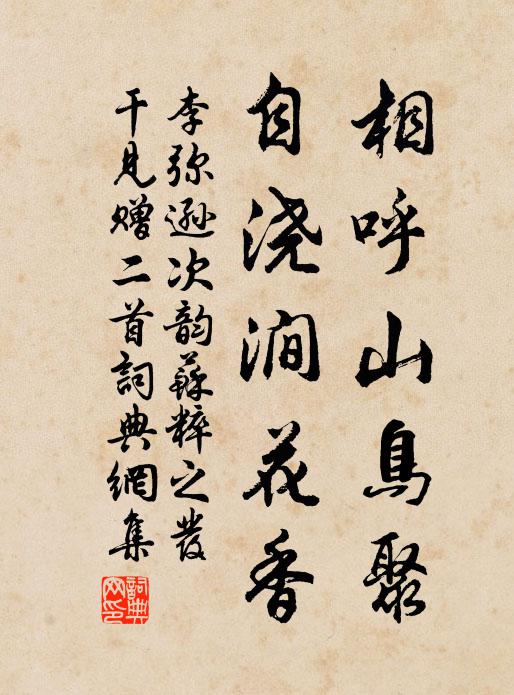 相呼山鸟聚
自浇涧花香
李弥逊次韵苏粹之发
干见赠二首词典網集
詞典网印